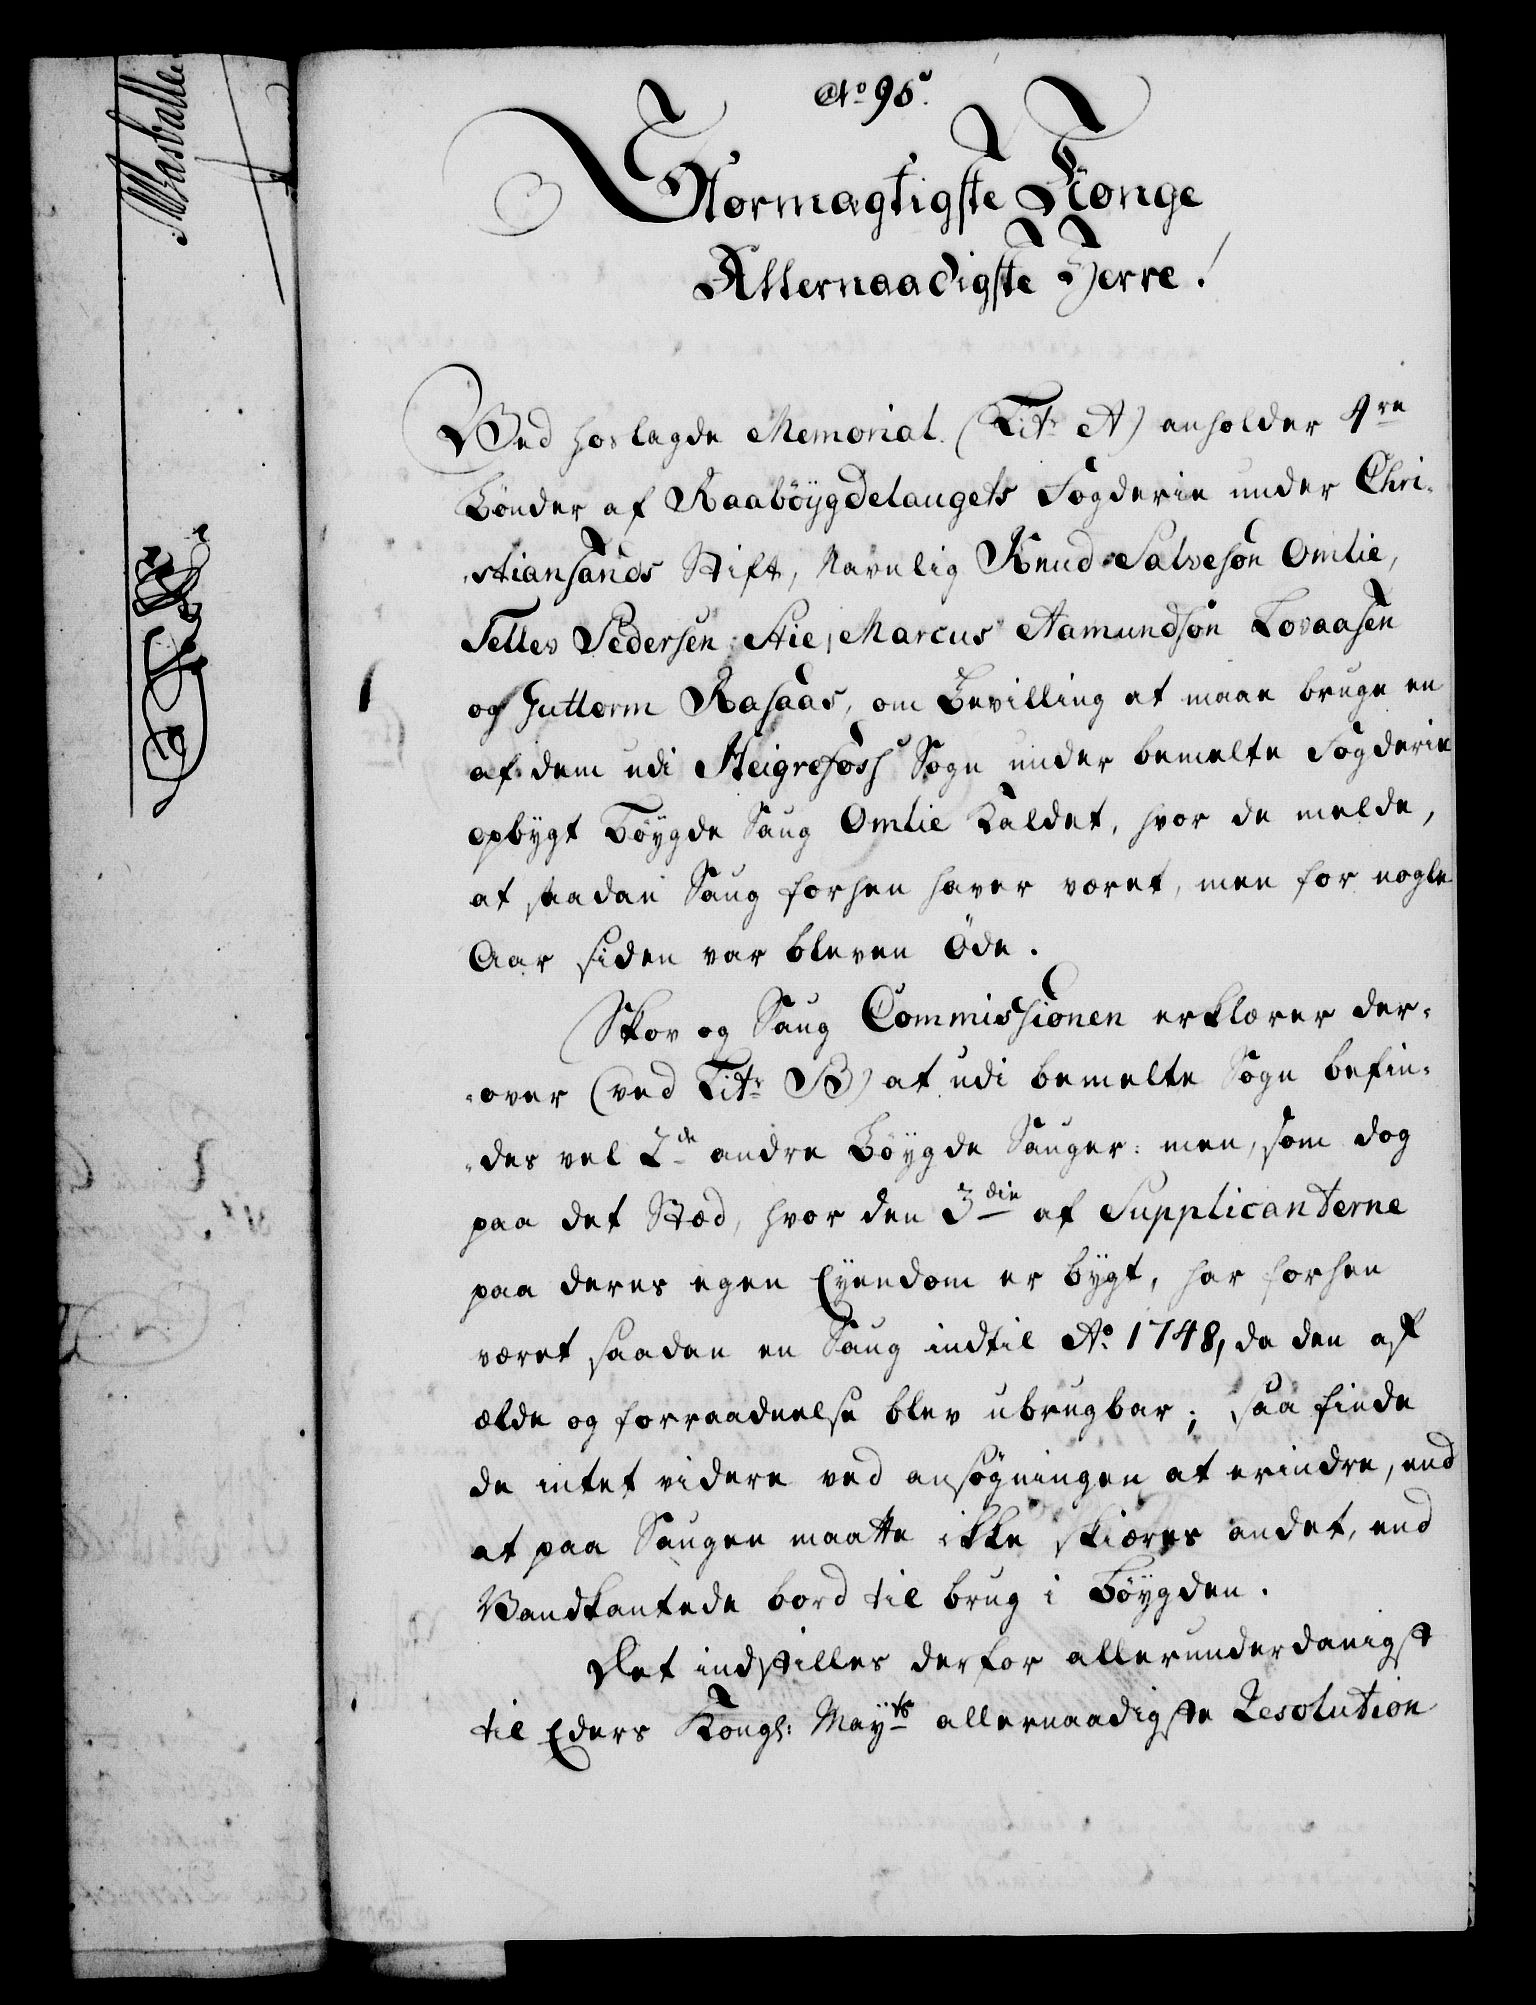 No 95.
Stormægtigste Konge
Allernaadigste Herre!
Ved hoslagde Memorial (Litr A) anholder 4re
Bönder af Raaböygdelaugets Fogderie under Chri-
-stiansands Stift, Navnlig Knud Salvesøn Omlie,
Tellev Pedersen Stie, Marcus Aamundsøn Lovaasen
og Guttorm Rasaas, om Bevilling at maae bruge en
af dem udi Heigrefoss Sogn under bemelte Fogderie
opbygt Böygde Saug Omlie kaldet, hvor de melde,
at saadan Saug forhen haver været, men for nogle
Aar siden var bleven Öde.
Skov og Saug Commissionen erklærer der-
-over (ved Litr B) at udi bemelte Sogn befin-
-des vel 2de andre Böygde Sauger: men, som dog
paa det Stæd, hvor den 3die af Supplicanterne
paa deres egen Eyendom er bygt, har forhen
været saadan en Saug indtil Ao 1748, da den af
ælde og forraadnelse blev ubrugbar; saa finde
de intet videre ved ansøgningen at erindre, end
at paa Saugen maatte ikke skiæres andet, end
Vandkantede bord til brug i Böygden.
Det indstilles derfor allerunderdanigst
til Eders Kongl: Mayts allernaadigste Resolution